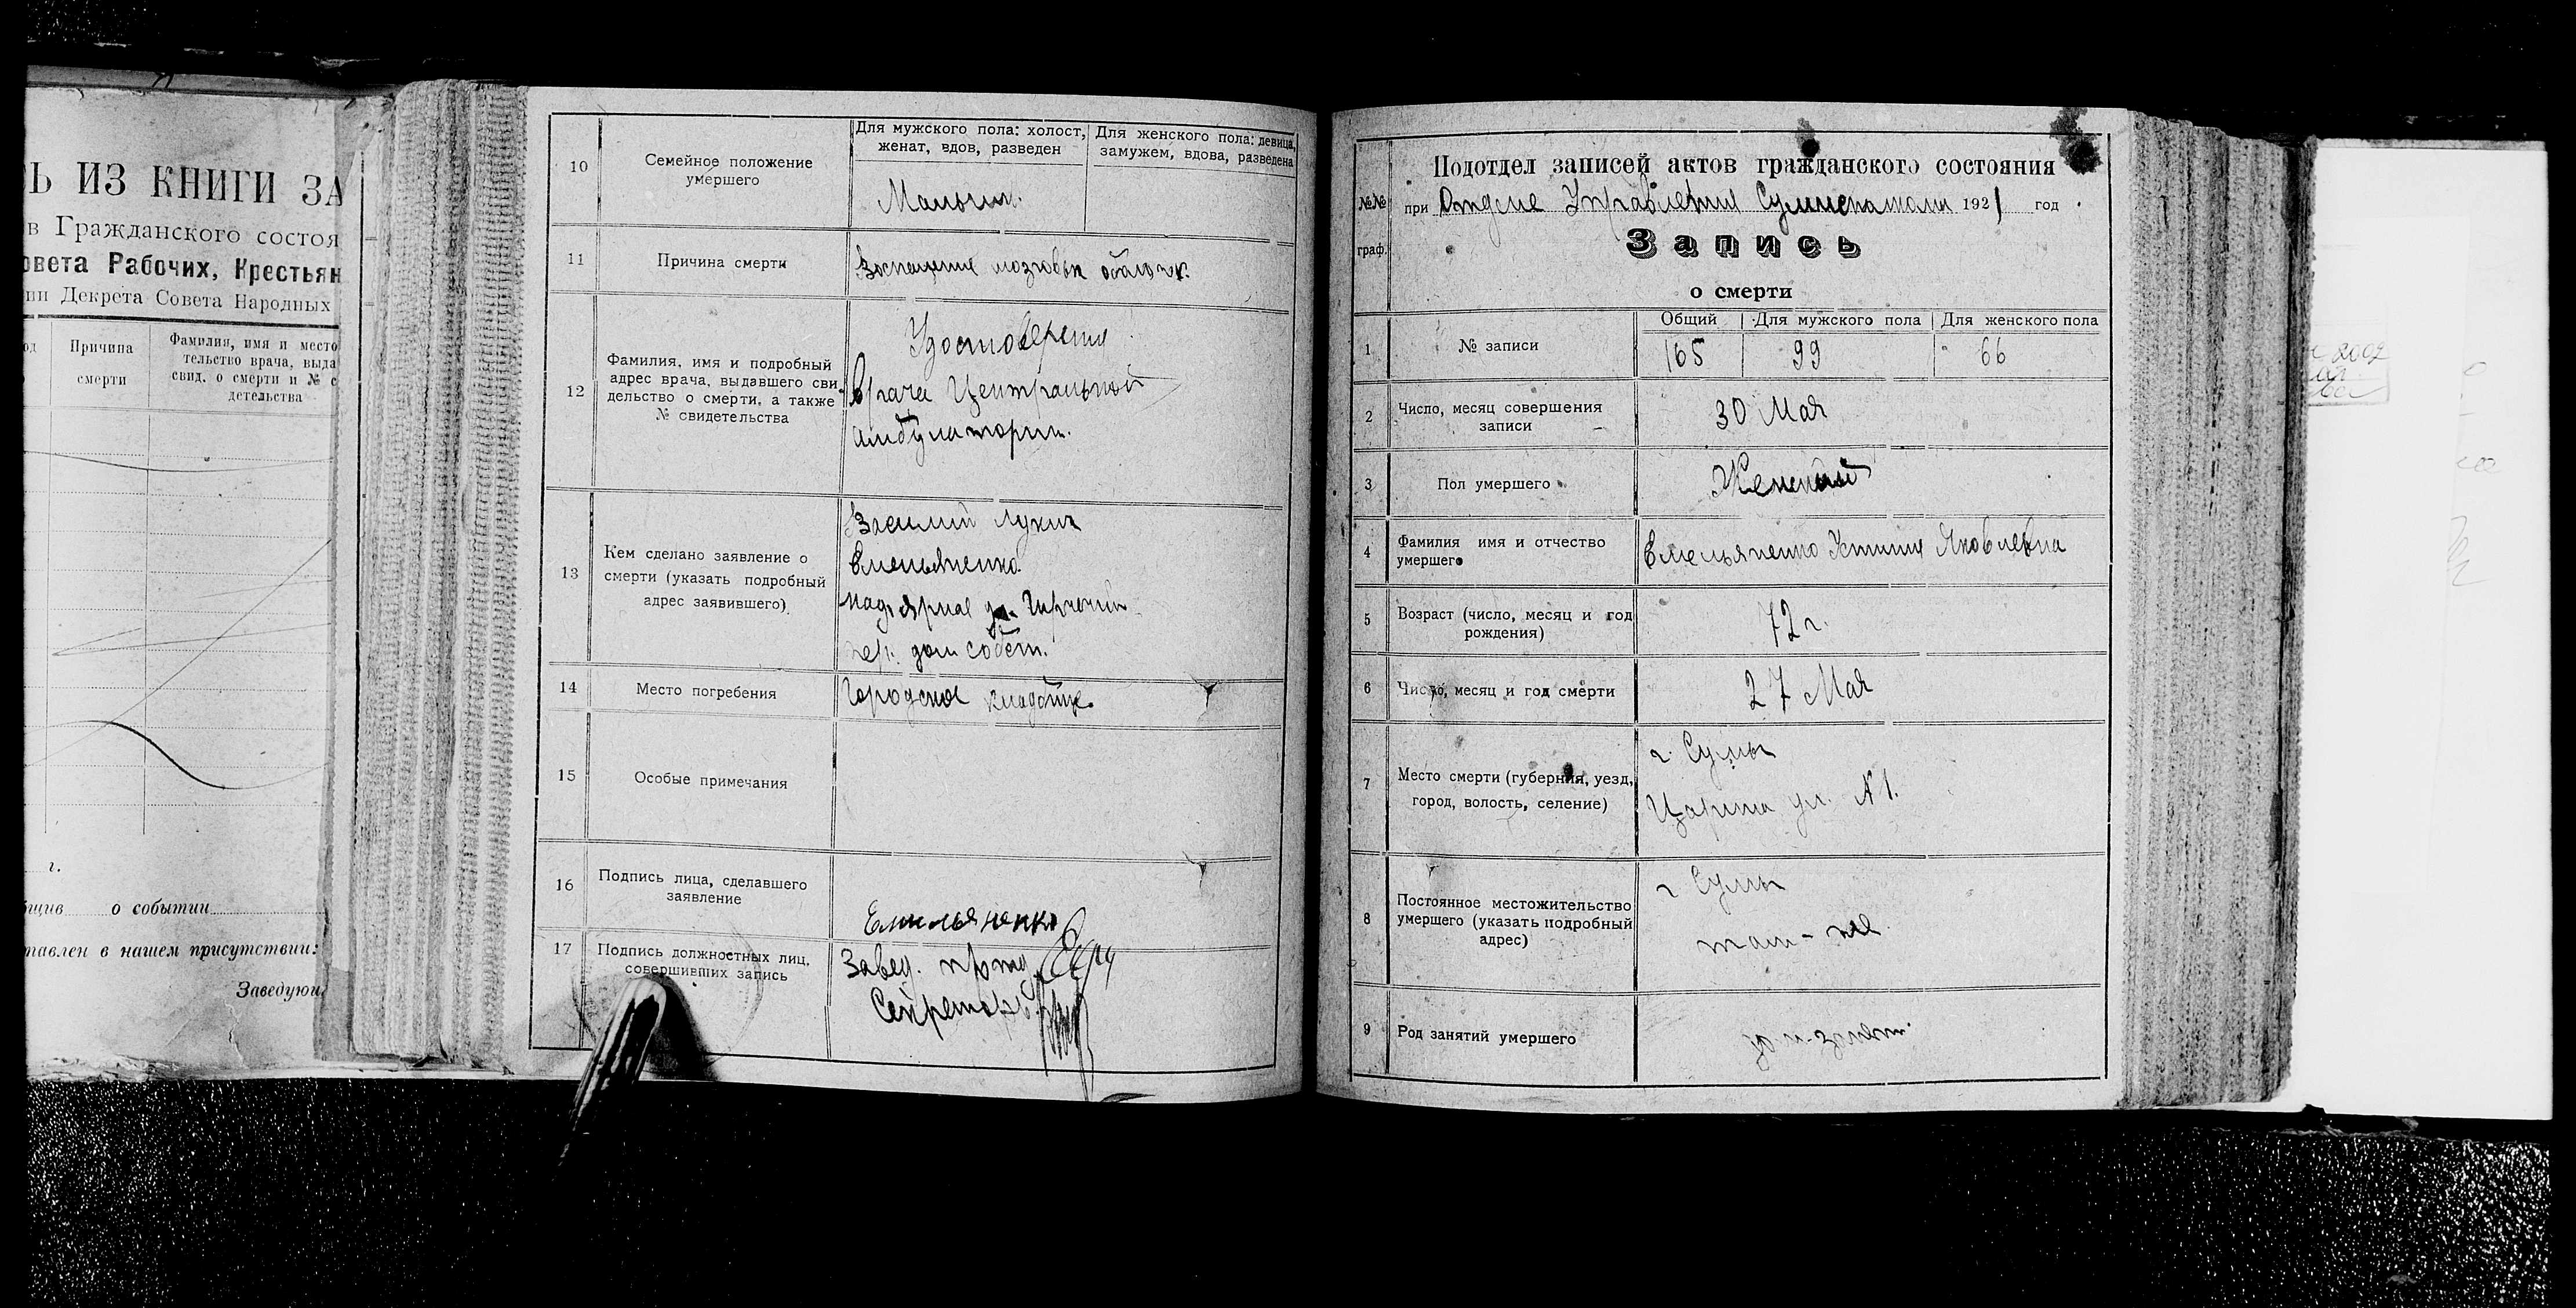 Ь ИЗ КНИГИ ЗА
в Гражданского состоя
овета Рабочих, Крестьян
ии Декрета Совета Народных
Причина
смерти
Фамилия, имя и место
тельство врача, выда
свид. о смерти и № с
детельства
г.
бщив о событии
тавлен в нашем присутствии:
Заведующ
10
Семейное положение
умершего
Для мужского пола: холост,
женат, вдов, разведен
Для женского пола: девица,
замужем, вдова, разведена
11
Причина смерти
Воспаление мозговых оболочек.
12
Фамилия, имя и подробный
адрес врача, выдавшего сви-
дельство о смерти, а также
№ свидетельства
Удостоверение
врача Центральной
амбулатории.
13
Кем сделано заявление о
смерти (указать подробный
адрес заявившего)
Василий Лукич
Емельяненко
пер. дом собст.
14
Место погребения
Городское кладбище.
15
Особые примечания
16
Подпись лица, сделавшего
заявление
Емельяненко
17
Подпись должностных лиц,
совершивших запись
Завед.
Секретарь
№№
граф.
Подотдел записей актов гражданского состояния
при Отделе Управления 1921 год
Запись
о смерти
1
№ записи
Общий
Для мужского пола
Для женского пола
165
99
66
2
Число, месяц совершения
записи
30 Мая
3
Пол умершего
Женский
4
Фамилия имя и отчество
умершего
Емельяненко Устиния Яковлевна
5
Возраст (число, месяц и год
рождения)
72 г.
6
Число, месяц и год смерти
27 Мая
7
Место смерти (губерния, уезд,
город, волость, селение)
г. Сумы
ул. № 1.
8
Постоянное местожительство
умершего (указать подробный
адрес)
г. Сумы
там-же
9
Род занятий умершего
2002